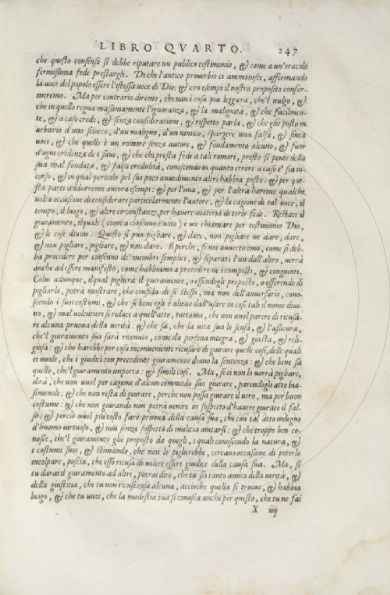 LIBRO QVARTO. 247
che questo consenso si debbe riputare un publico testimonio, & come a un'oracolo
fermissima fede prestargli. Di che l'antico prouerbio ci ammonisce, affermando
la uoce del popolo essere l'istessa uoce di Dio: & con essempi il nostro proposito confer-
meremo. Ma per contrario diremo, che non è cosa piu leggiera, che'l uulgo, &
che in quello regna massimamente l'ignoranza, & la malignità, & che facilmen-
te, & a caso crede, & senza consideratione, & rispetto parla, & che gli posto in
arbitrio d'uno sciocco, d'un maligno, d'un nimico, spargere una falsa, &
uoce, & che quelli è un romore senza autore, & fondamento alcuno, & fuor
d'ogni credenza de i saui, & che chi presta fede a tali romori, presto si pente della
sua mal fondata, & falsa credulità, conoscendo in quanto errore a caso è sia in-
corso, & in qual pericolo pel suo poco auuedimento altri habbia posto. & per que-
sta parte addorremo ancora essempi: & per l'una, & per l'altra haremo qualche
uolta occasione di considerare particolarmente l'autore, & la cagione di tal uoce, il
tempo, il luogo, & altre circunstanze, per hauere materia di torle fede. Restaci il
giuramento, il quale (come a ciascuno è noto) è un chiamare per testimonio Dio,
& le cose diuine. Questo si può pigliare, & dare, non pigliare ne dare, dare,
& non pigliare, pigliare, & non dare. Il perche, se noi auuertiremo, come si deb-
ba procedere per ciascuno de' membri semplici, & separati l'un dall'altro, uerrà
anche ad essere manifesto, come habbiamo a procedere ne i composti, & congiunti.
Colui adunque, il qual piglierà il giuramento, o essendogli proposto, o essendo di
pigliarlo, potrà mostrare, che confida di se stesso, ma non dell'auuersario, cono-
scendo i suoi costumi, & che se bene egli è alieno dall'usare in caso tale il nome diui-
no, & mal uolentieri si riduce a quell'atto, tuttauia, che non uuol parere di ricusa-
re alcuna pruoua della uerità. & che sa, che la uita sua lo scusa, & l'assicura,
che'l giuramento suo sarà tenuto, come da persona integra, & giusta, & reli-
giosa: & che harebbe per cosa inconueniente ricusare di giurare quelle cose, delle quali
ei uuole, che i giudici con precedente giuramento diano la sentenza: & che bene sa
quello, che'l giuramento importa: & simili cose. Ma, se ei non lo uorrà pigliare,
dirà, che non uuol per cagione d'alcun commodo suo giurare, parendogli atto bia-
simeuole. & che non resta di giurare, perche non possa giurare il uero, ma per buon
costume: & che non giurando non potrà uenire in sospetto d'hauere giurato il fal-
so: & perciò uuol piu tosto fare pruoua della causa sua, che con tal atto indegno
d'huomo uirtuoso, & non senza sospetto di malitia aiutarsi: & che troppo ben co-
nosce, che'l giuramento gli è proposto da quegli, i quali conoscendo la natura, &
i costumi suoi, & stimando, che non lo piglierebbe, cercano occasione di poterlo
incolpare, poscia, che esso ricusa di uolere essere giudice della causa sua. Ma, se
tu darai il giuramento ad altri, potrai dire, che tu sei tanto amico della uerità, &
della giustitia, che tu non ricusi cosa alcuna, accioche quella si truoui, & habbia
luogo, & che tu uuoi, che la modestia tua si conosca anche per questo, che tu ne fai
X iiij